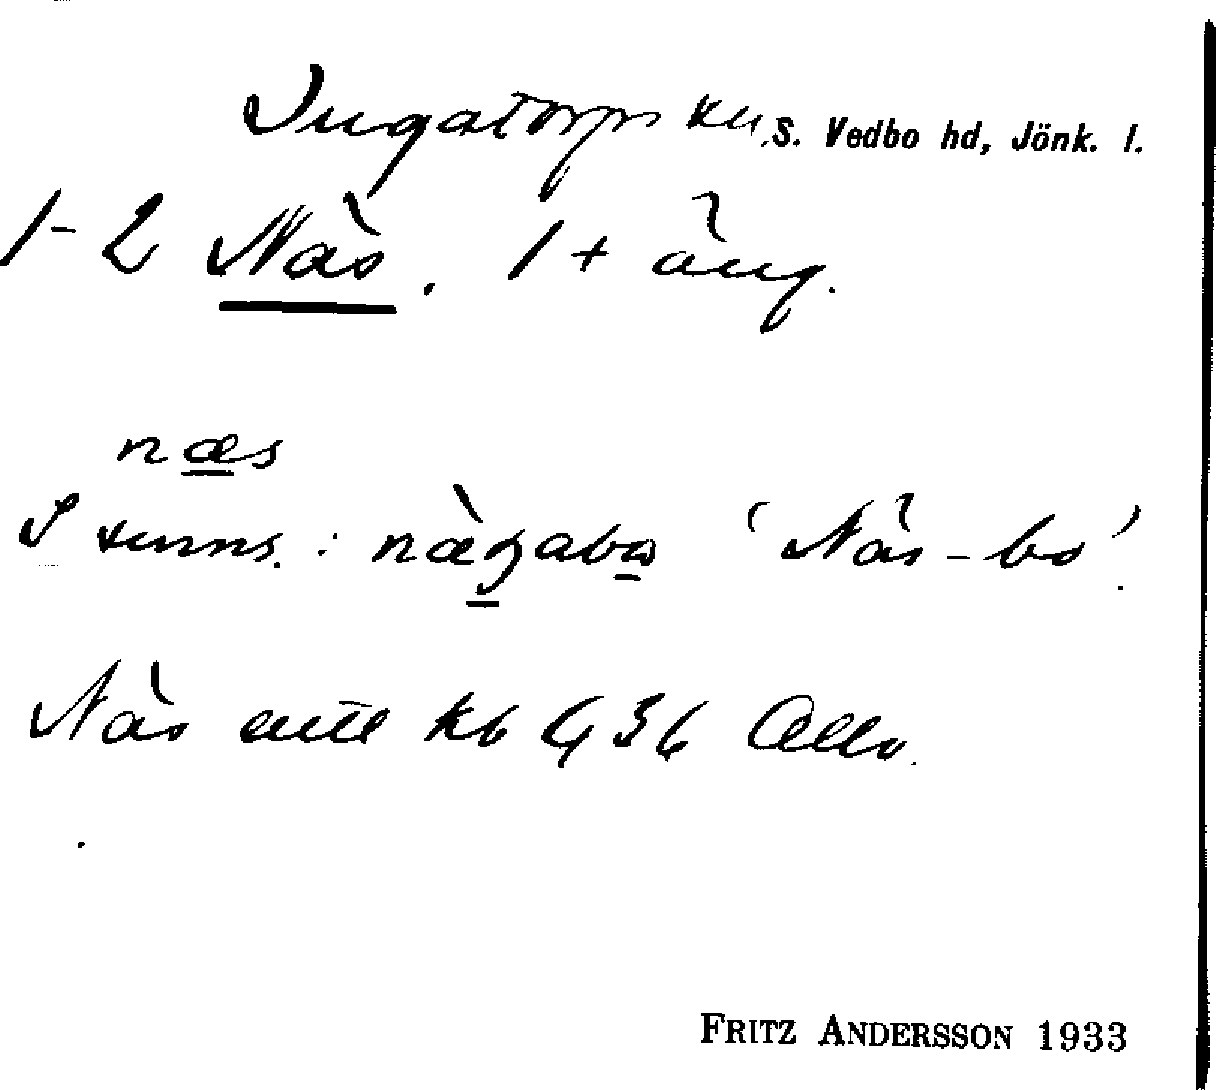 Ingatorps kn, S. Vedbo hd, Jönk. l.
1-2 Näs. 1 + äng.
næs
I sms. : næ̀gabo 'Näs-bo'.
Näs enl kb 436
FRITZ ANDERSSON 1933